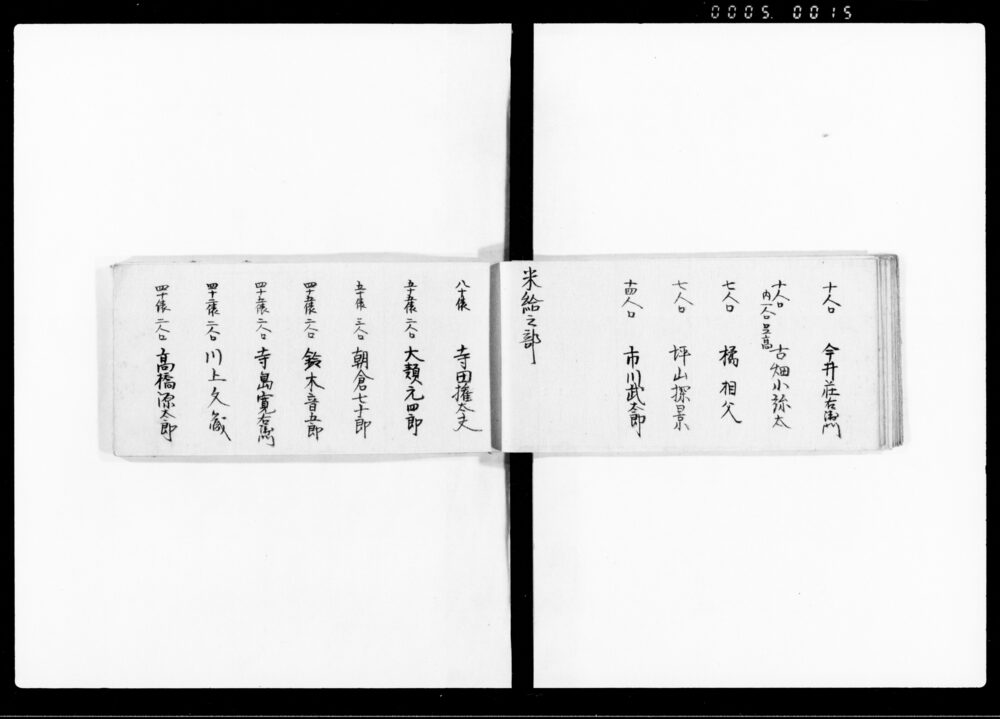 0005 0015
十人口 今井荘右衛門
十人口 内一人口足高 古畑小弥太
七人口 橘相父
七人口 坪山探景
十四人口 市川武太郎
米給之部
八十俵 寺田権太夫
五十五俵二人口 大類元四郎
五十俵三人口 朝倉七十郎
四十五俵二人口 鈴木音五郎
四十五俵二人口 寺島寛右衛門
四十三俵二人口 川上久蔵
四十俵二人口 高橋源太郎